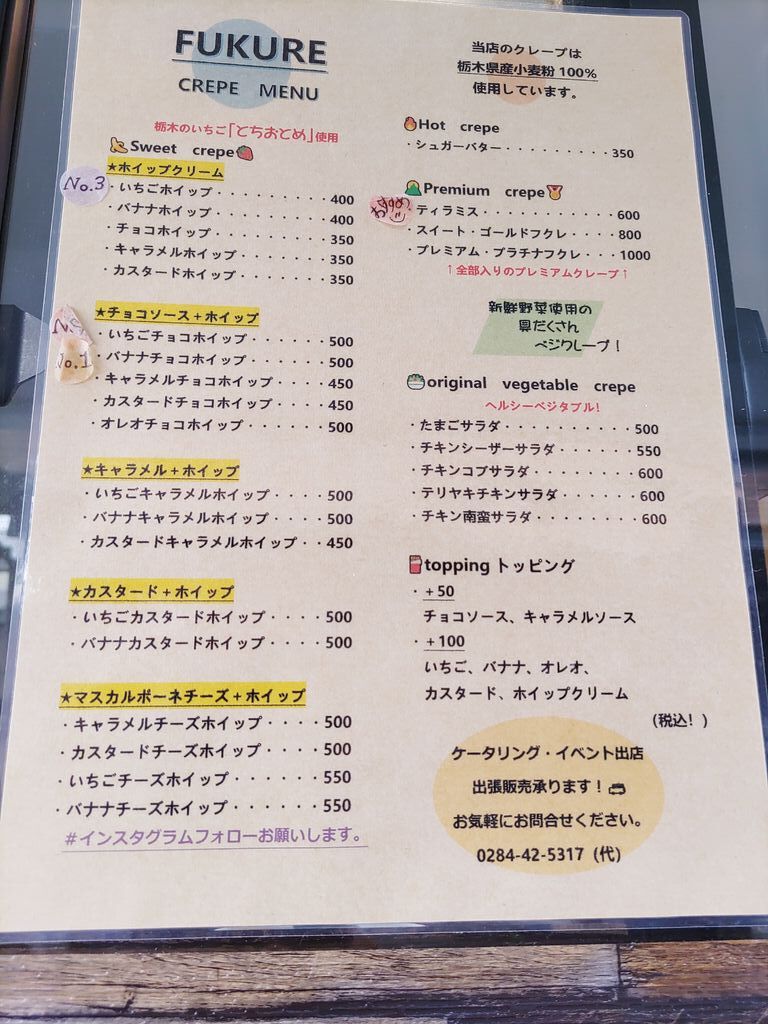 FUKURE
CREPE MENU
栃木のいちご「とちおとめ」使用
Sweet crepe
★ホイップクリーム
No.3
・いちごホイップ・・・・・・・・400
・バナナホイップ・・・・・・・・400
・チョコホイップ・・・・・・・・350
・キャラメルホイップ・・・・・・350
・カスタードホイップ・・・・・・350
★チョコソース+ホイップ
・いちごチョコホイップ・・・・・500
No.1
・バナナチョコホイップ・・・・・500
・キャラメルチョコホイップ・・・450
・カスタードチョコホイップ・・・450
・オレオチョコホイップ・・・・・500
★キャラメル+ホイップ
・いちごキャラメルホイップ・・・・500
・バナナキャラメルホイップ・・・・500
・カスタードキャラメルホイップ・・450
★カスタード+ホイップ
・いちごカスタードホイップ・・・・500
・バナナカスタードホイップ・・・・500
★マスカルボーネチーズ+ホイップ
・キャラメルチーズホイップ・・・・500
・カスタードチーズホイップ・・・・500
・いちごチーズホイップ・・・・・・550
・バナナチーズホイップ・・・・・・550
#インスタグラムフォローお願いします。
当店のクレープは
栃木県産小麦粉100%
使用しています。
Hot crepe
・シュガーバター・・・・・・・・・350
Premium crepe
おすすめ
・ティラミス・・・・・・・・・・600
・スイート・ゴールドフクレ・・・800
・プレミアム・プラチナフクレ・・・1000
↑全部入りのプレミアムクレープ↑
新鮮野菜使用の
具だくさん
ベジクレープ!
original vegetable crepe
ヘルシーベジタブル!
・たまごサラダ・・・・・・・・・・500
・チキンシーザーサラダ・・・・・・550
・チキンコブサラダ・・・・・・・・600
・テリヤキチキンサラダ・・・・・・600
・チキン南蛮サラダ・・・・・・・・600
topping トッピング
・+50
チョコソース、キャラメルソース
・+100
いちご、バナナ、オレオ、
カスタード、ホイップクリーム
(税込!)
ケータリング・イベント出店
出張販売承ります!
お気軽にお問合せください。
0284-42-5317(代)